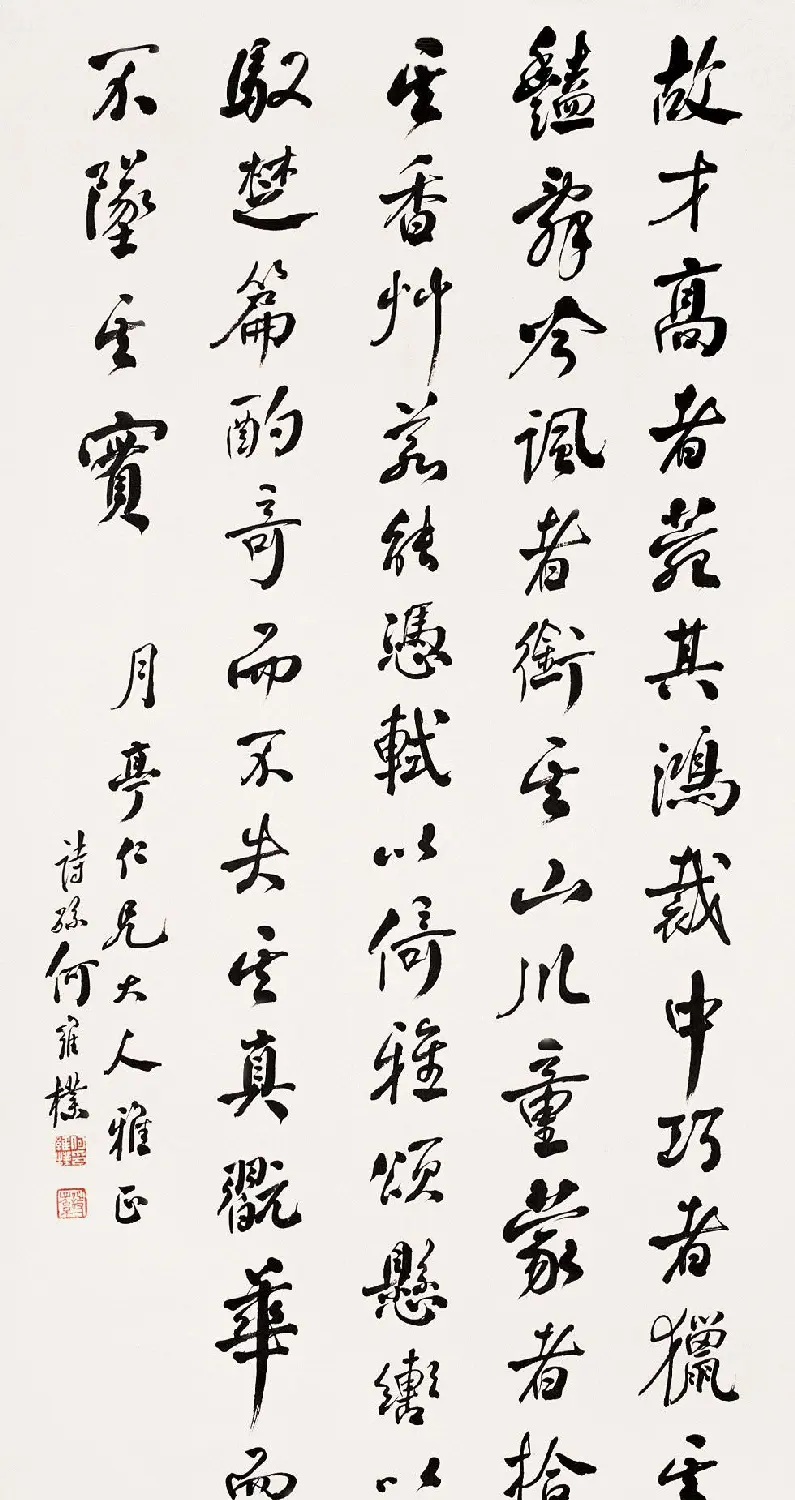 故才高者菀其鴻裁中巧者獵其
豔辭吟諷者銜其山川童蒙者拾
其香艸若能憑軾以倚雅頌懸轡以
馭楚篇酌奇而不失其真翫華而
不墜其實
月亭仁兄大人雅正
詩孫何維樸